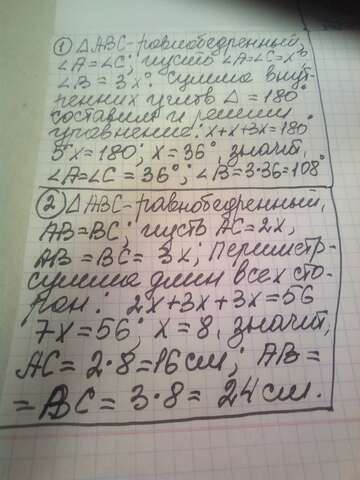 ① △ABC-равнобедренный,
∠A=∠C; пусть ∠A=∠C=x°,
∠B=3x°. Сумма внут-
ренних углов △=180°
составим и решим
уравнение: x+x+3x=180°
5x=180; x=36°, значит,
∠A=∠C=36°; ∠B=3·36=108°
② △ABC-равнобедренный,
AB=BC; пусть AC=2x,
AB=BC=3x; Периметр-
сумма длин всех сто-
рон: 2x+3x+3x=56
7x=56; x=8, значит,
AC=2·8=16см; AB=
=BC=3·8=24см.